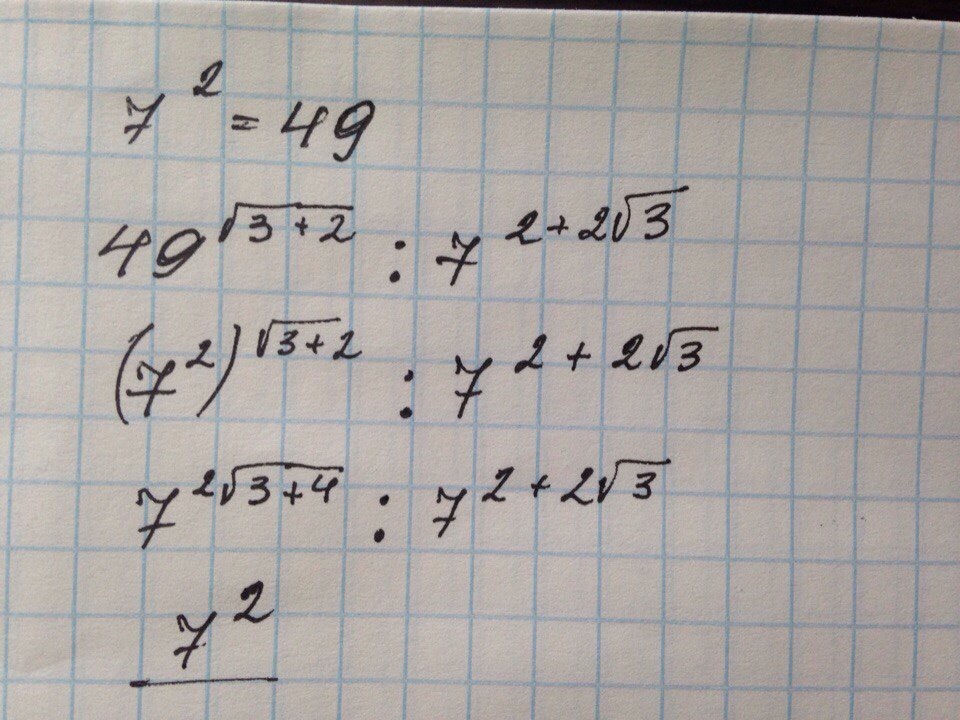 7² = 49
49^√(3+2) : 7^(2+2√3)
(7²)^√(3+2) : 7^(2+2√3)
7^(2√(3+4)) : 7^(2+2√3)
7²